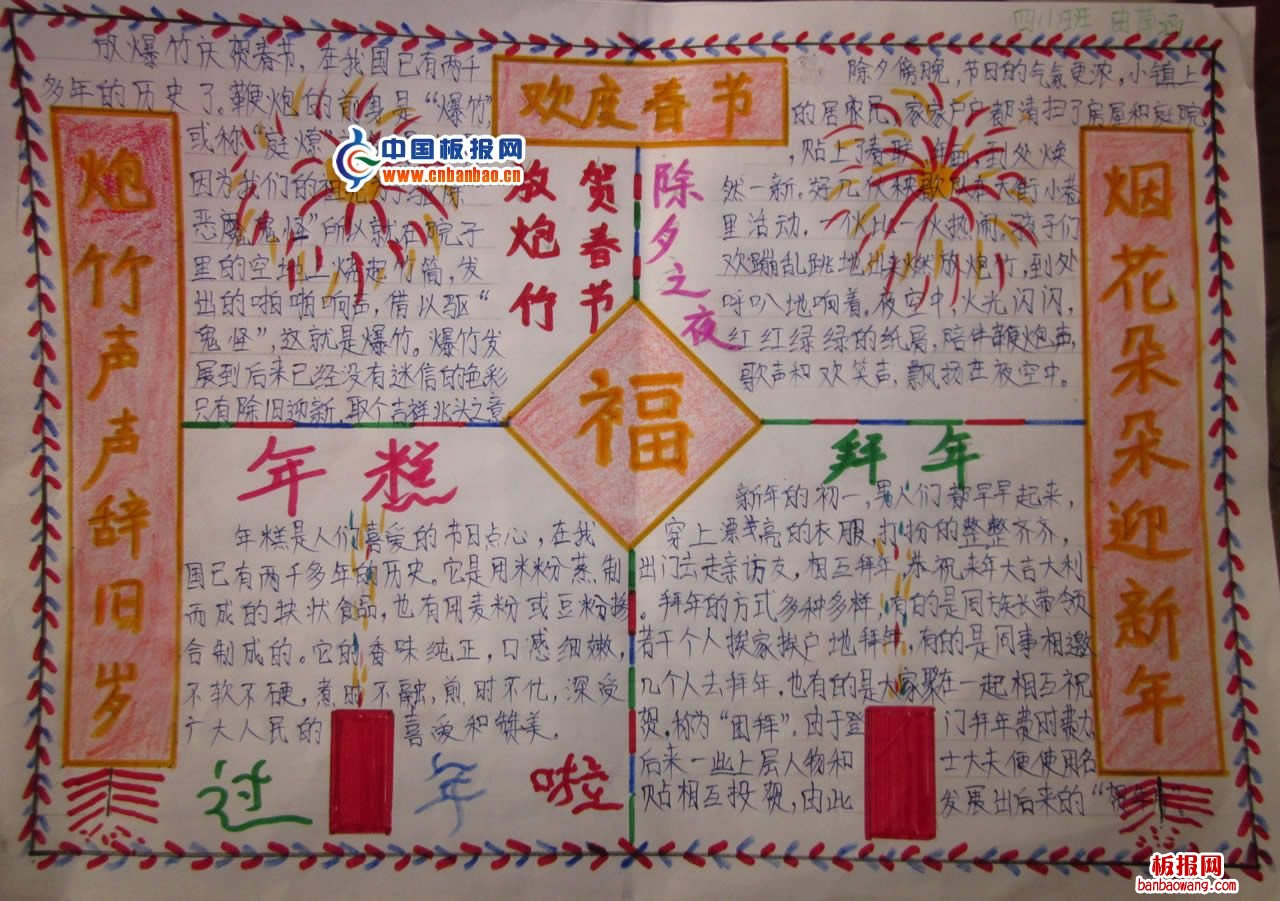 四(1)班
欢度春节
炮竹声声辞旧岁
烟花朵朵迎新年
放炮竹
贺春节
放爆竹庆祝春节，在我国已有两千
多年的历史了。鞭炮的前身是“爆竹”，
或称“庭燎”
因为我们的
恶魔鬼怪”所以就在院子
里的空地上烧起竹筒，发
出的啪啪响声，借以驱“
鬼怪”，这就是爆竹。爆竹发
展到后来已经没有迷信的色彩
只有除旧迎新，取个吉祥兆头之意
中国板报网
www.cnbanbao.cn
除夕之夜
除夕傍晚，节日的气氛更浓，小镇上
的居农民，家家户户都清扫了房屋和庭院
，贴上了春联 到处焕
然一新。好几伙秧歌 大街小巷
里活动，一伙比一伙热闹，孩子们
欢蹦乱跳地出来燃放炮竹，到处
呼叭地响着。夜空中，火光闪闪，
红红绿绿的纸屑，陪伴鞭炮声，
歌声和欢笑声，飘扬在夜空中。
福
年糕
年糕是人们喜爱的节日点心，在我
国已有两千多年的历史。它是用米粉蒸制
而成的块状食品，也有用麦粉或豆粉掺
合制成的。它的香味纯正，口感细嫩，
不软不硬，煮时不融，煎时不化，深受
广大人民的喜爱和赞美。
过年啦
拜年
新年的初一，男人们都早早起来，
穿上漂亮的衣服，打扮的整整齐齐，
出门去走亲访友，相互拜年，恭祝来年大吉大利
。拜年的方式多种多样，有的是同族长带领
若干个人挨家挨户地拜年，有的是同事相邀
几个人去拜年，也有的是大家聚在一起相互祝
贺，称为“团拜”。由于登门拜年费时费力
后来一些上层人物和士大夫便使用名
贴相互投贺，由此发展出后来的“
板报网
banbaowang.com